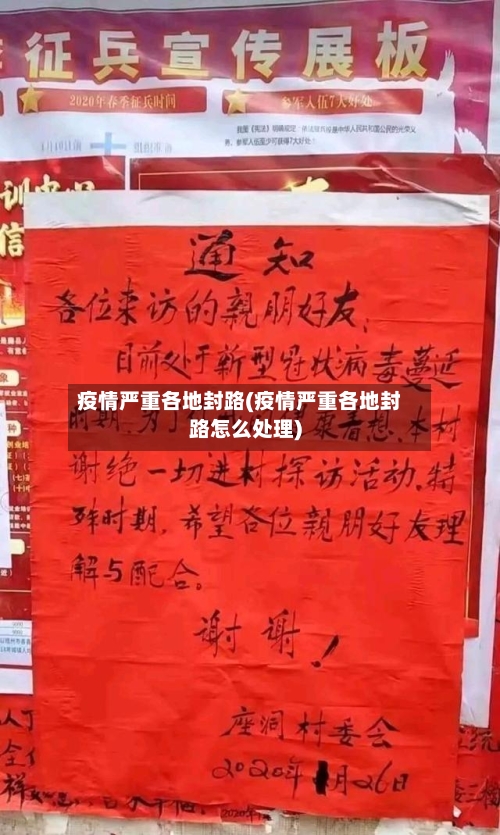 征兵宣传展板
2020年春季征兵时间
参军入伍7大好处
我国《宪法》明确规定:依法服兵役是中华人民共和国公民的光荣义
务。参军入伍至少可获得7大好处!
训
信
通知
各位来访的親朋好友:
目前处于新型冠状病毒蔓延
疫情严重各地封路(疫情严重各地封
路怎么处理)
时期,为了 着想,本村
谢绝一切进村探访活动。特
殊时期,希望各位親朋好友理
解与配合。
谢谢!
座洞村委会
2020年1月26日
2020年